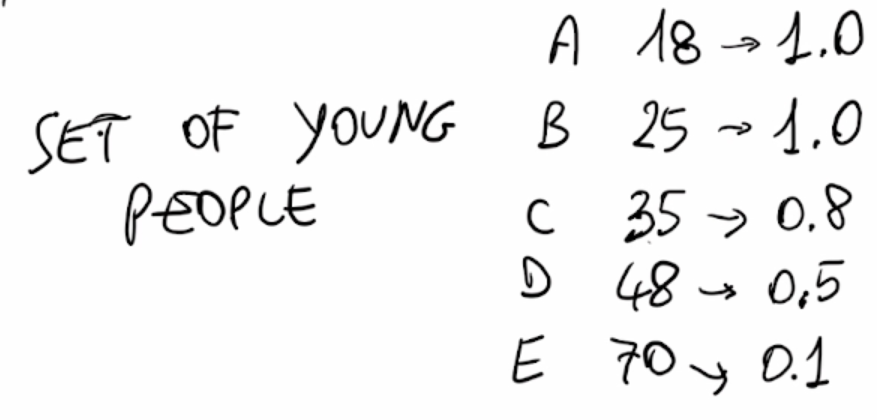 SET OF YOUNG
PEOPLE
A 18 → 1.0
B 25 → 1.0
C 35 → 0.8
D 48 → 0.5
E 70 → 0.1